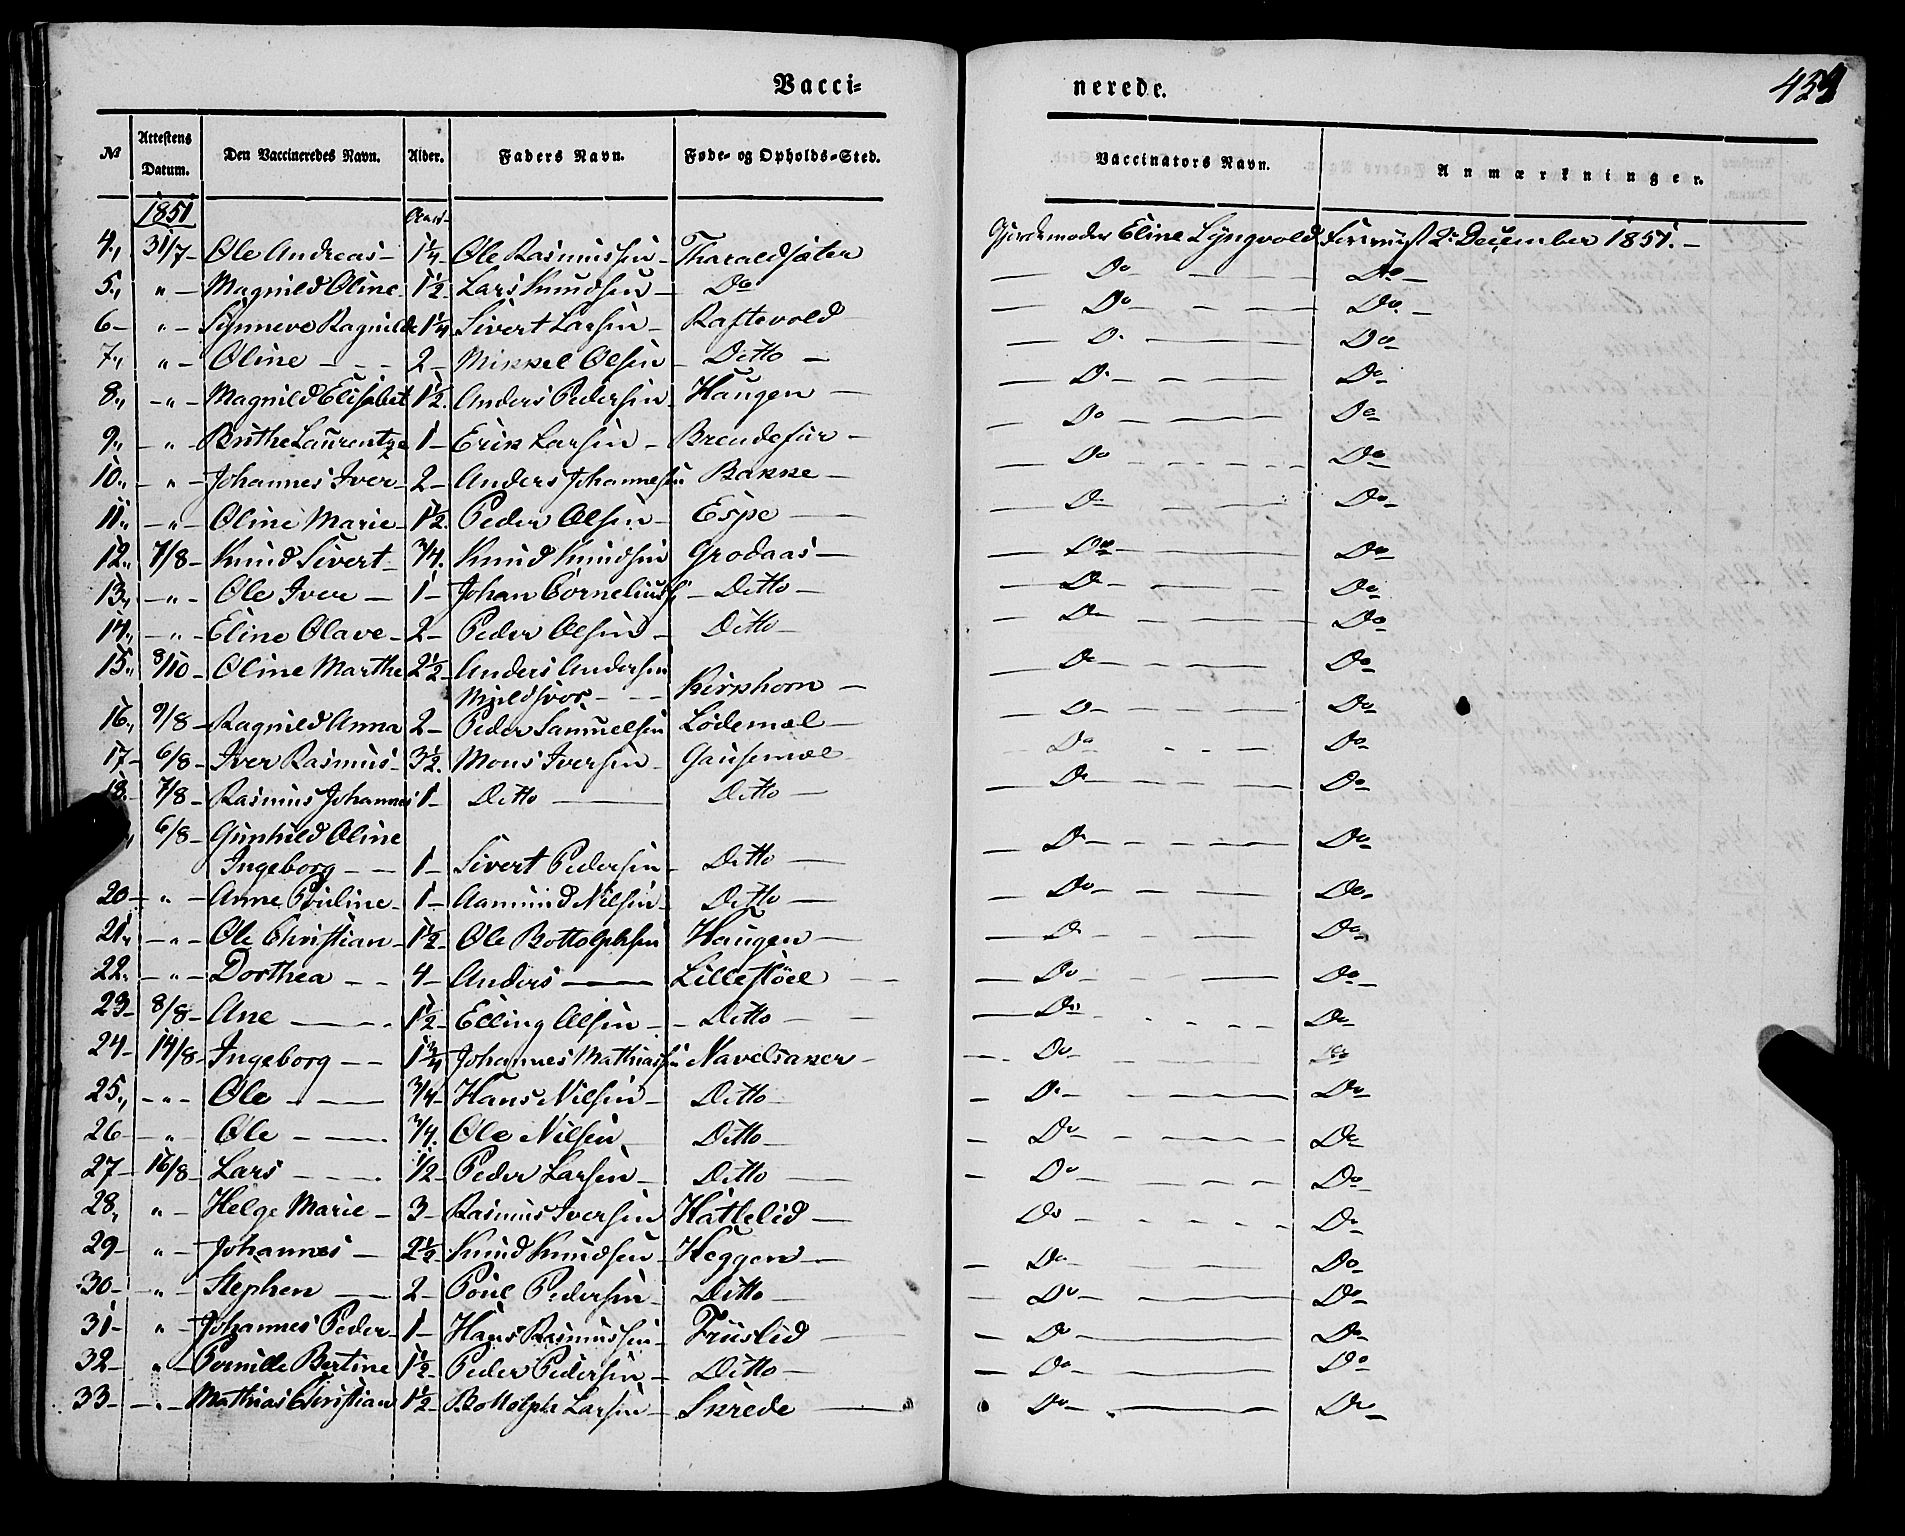 Vacci-
nerede.
№ Attestens Datum. Den Vaccineredes Navn. Alder. Faders Navn. Føde- og Opholds-Sted. Vaccinators Navn. Anmærkninger.
1851 Aar
4., 31/7 - Ole Andreas - 1¼ - Ole Rasmussen - Tharaldsæter Gjordemoder Eline Lyngvold Forevist 2. December 1851. -
5., " - Magnild Oline 1½. Lars Knudsen - Do — Do - — Do -
6 - " - Synneve Ragnilde 1¼ Sivert Larsen - Raftevold — Do - — Do. -
7., " - Oline - - - 2 - Mikkel Olsen - Ditto — D. — Do
8., - " - Magnild Elisabet 1½. Anders Pedersen - Haugen — D. - — Do -
9., - " - Brithe Laurentze 1 - Erik Larsen - — Do — Do -
10., - " - Johannes Iver - 2 - Anders Johannesen Bakke - — Do - - - Do -
11., - " - Oline Marie - 1½ Peder Olsen - Espe — — D - — Do -
12., 7/8 - Knud Sivert - ¾. Knud Knudsen Grodaas — — Do - — Do
13., - " - Ole Iver — 1 - Johan Corneliuss - Ditto - — D - — Do
14., - " - Eline Olave - 2 - Peder Olsen - Ditto — D - — Do -
15., 8/10 - Oline Marthe 2½ Anders Andersen — D - - Do -
Mjeldsvor - - - Kirkhorn —
16., 9/8 - Ragnild Anna 2 - Peder Samuelsen Lødemæl — — D - — Do -
17 - 6/8 - Iver Rasmus - 3½. Mons Iversen - Gausemæl - Do - - Do -
18. - 7/8 - Rasmus Johannes 1 - Ditto — Ditto — — D - — Do
6/8 - Gunhild Oline — D - - Do -
Ingeborg - - 1 - Sivert Pedersen - Ditto —
20 - " - Anne Pouline - 1 - Aamund Nilsen - Ditto — — Do - — Do -
21., - " - Ole Christian - 1½ - Ole Bottolphsen Haugen — — D - — Do -
22., - " - Dorthea - - 4 - Anders — — Do - — Do -
23 - 8/8 - Ane — . 1½ - Elling Olsen - - Ditto — — Do - - Do -
24 - 14/8 - Ingeborg - - 1¾ Johannes Mathiassen Navelsaker - - Do - — Do
25., - " - Ole - — ¾ - Hans Nilsen - Ditto — - D. - — Do -
26 - - " Ole - — . ¾. Ole Nilsen Ditto — - D - — D -
27 - 16/8 - Lars - - - . ½ Peder Larsen - Ditto — - Do - — Do -
28, " - Helge Marie - 3 - Rasmus Iversen Hatlelid — Do - - - D -
29 - " - Johannes - 2½ - Knud Knudsen - Heggen — - Do - — Do -
30 - - " - Stephen — 2 - Poul Pedersen - Ditto — - Do - — Do -
31 - " - Johannes Peder - 1 - Hans Rasmussen - Friislid — - D - — Do -
32 - " - Pernille Bertine 1½ - Peder Pedersen - Ditto — - Do - — Do
33 - - " - Mathias Christian 1½ - Bottolph Larsen - Skrede — - Do - — Do -